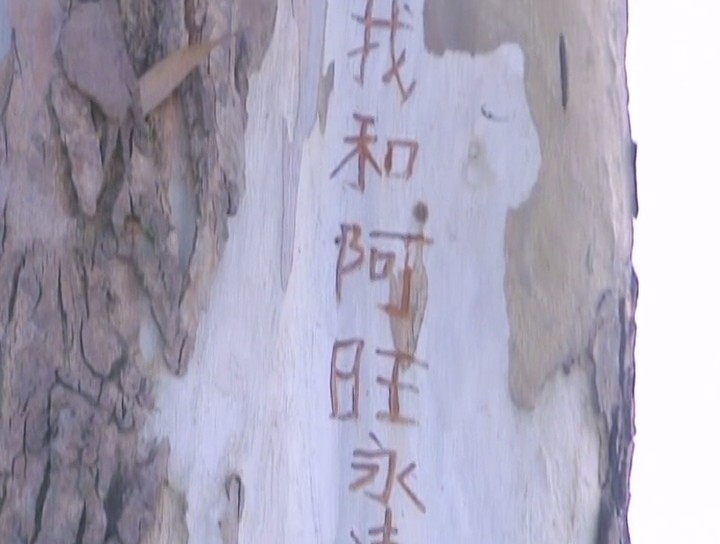 我和阿旺永